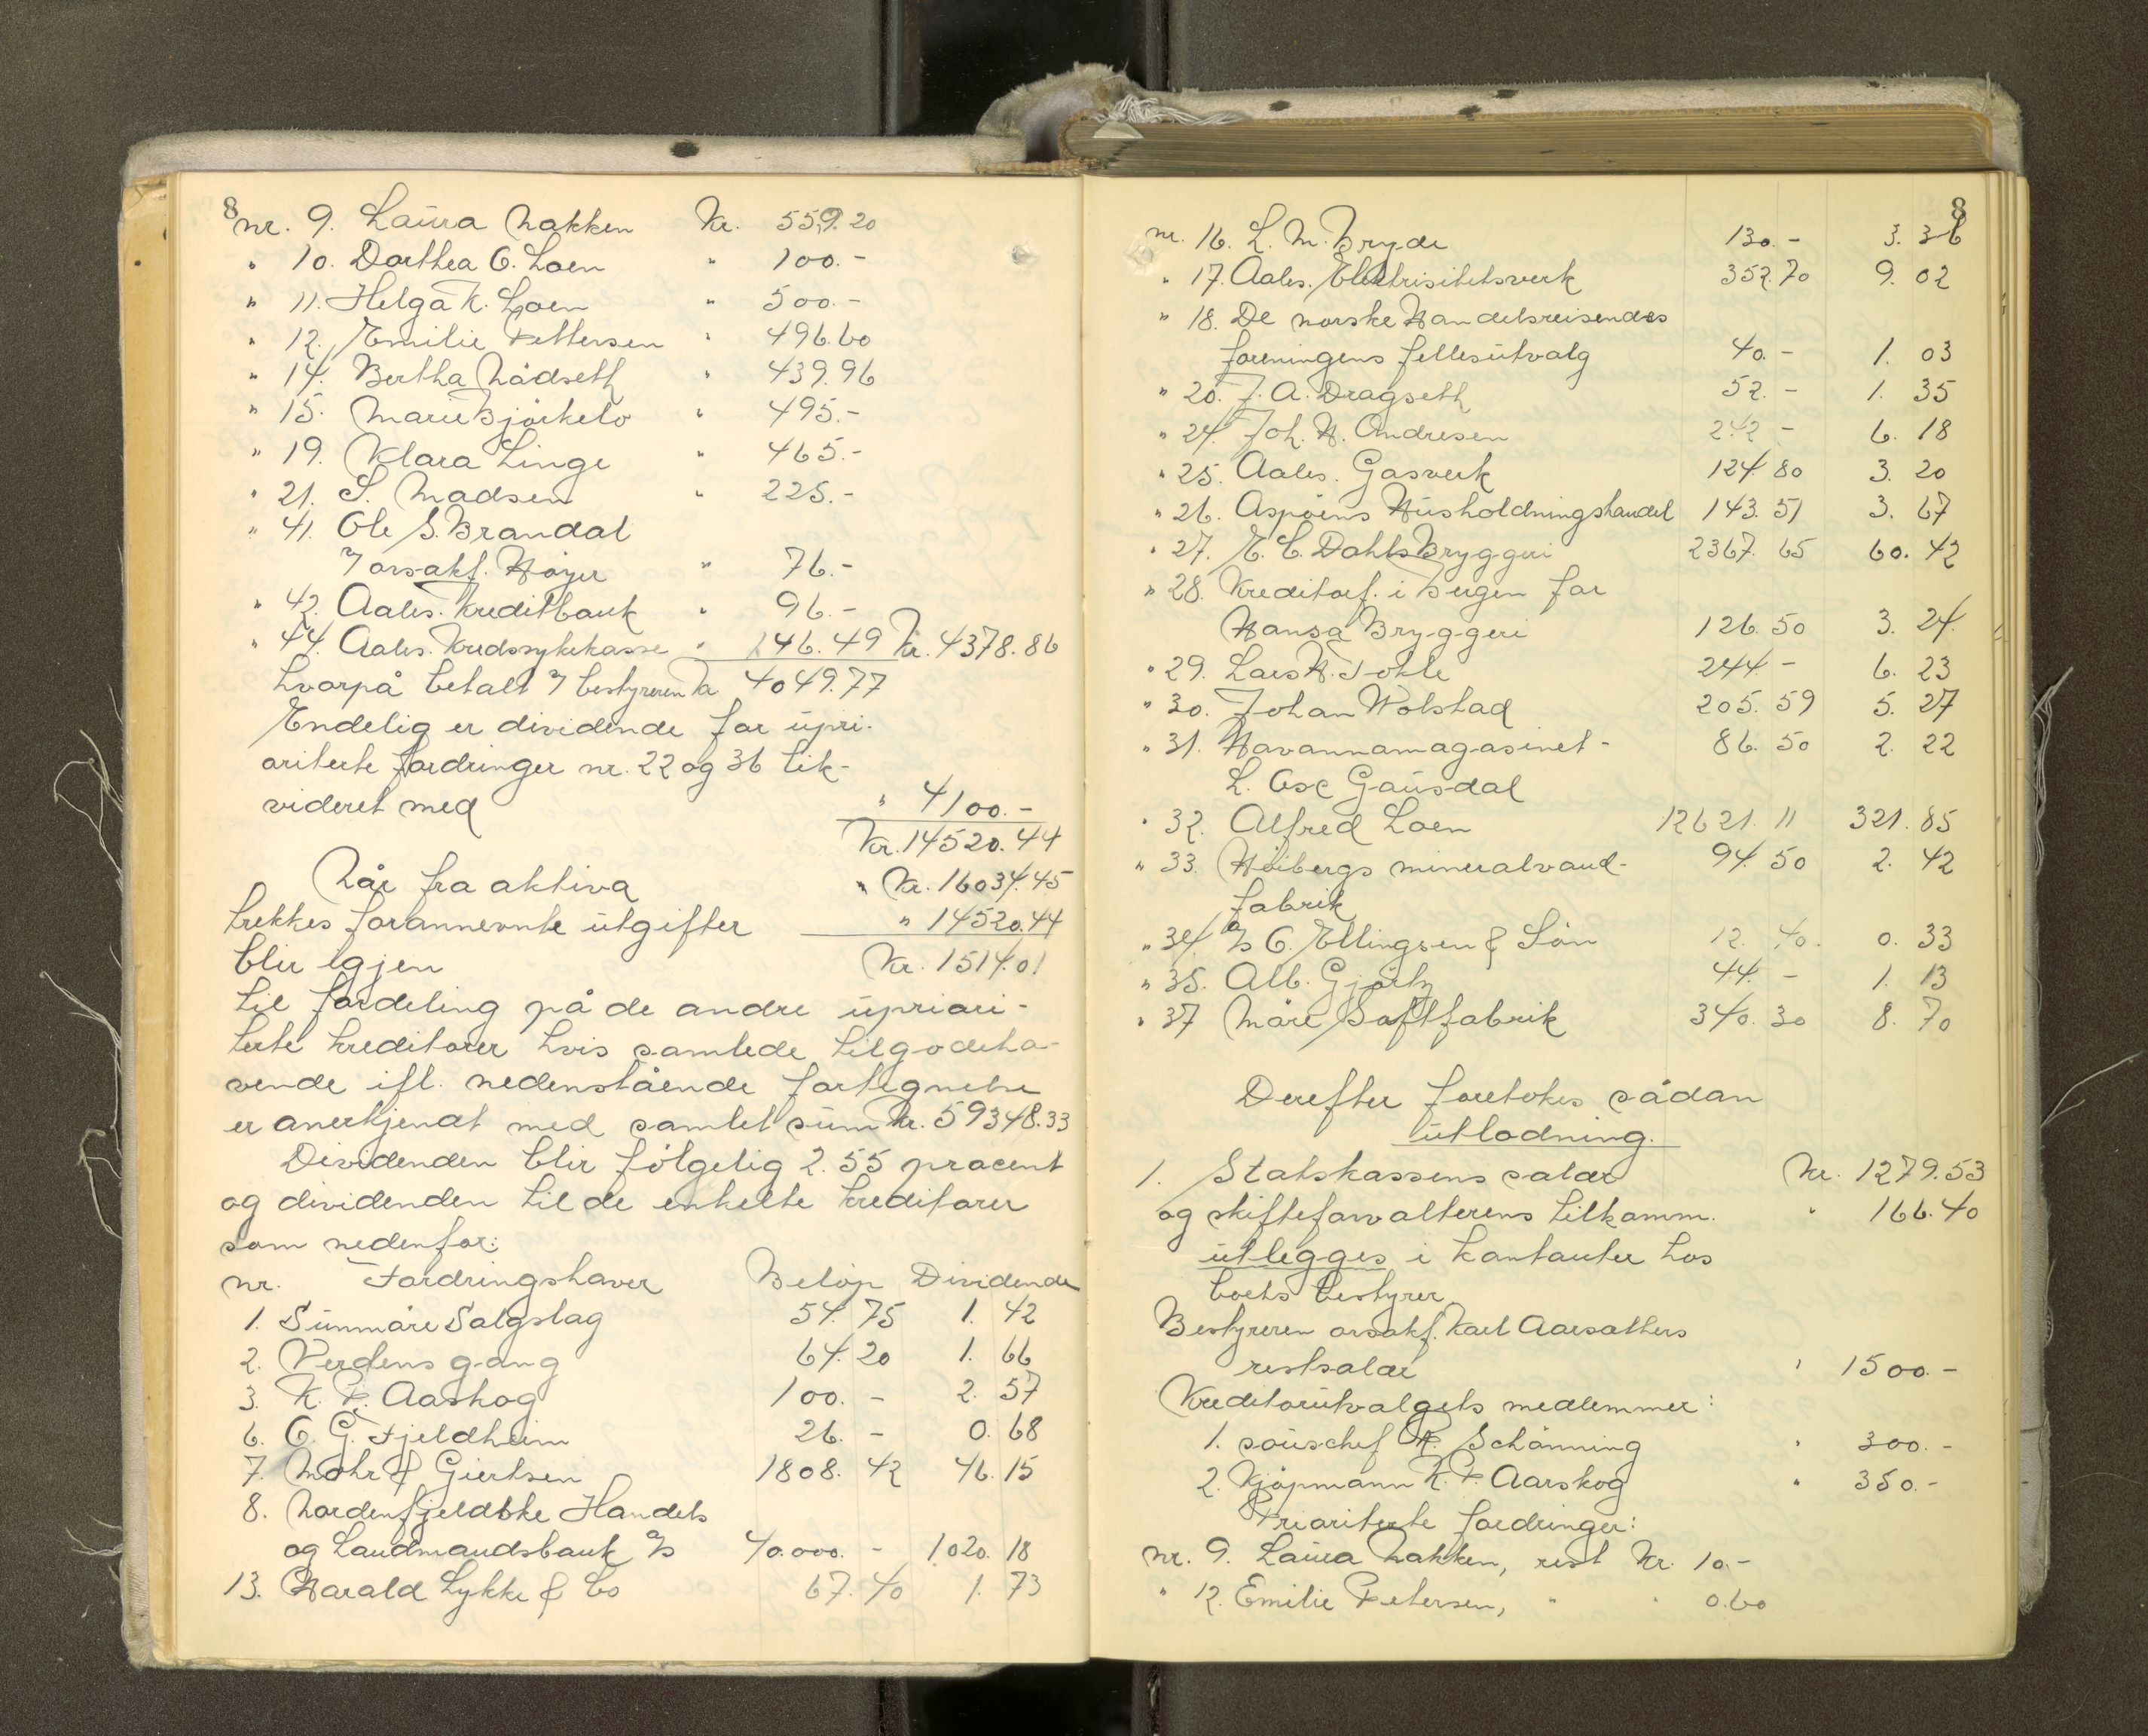 8
nr. 9. Laura Nakken Kr. 559.20
" 10. Dorthea O. Loen " 100.-
" 11. Helga K. Loen " 500.-
" 12. Emilie Pettersen " 496.60
" 14. Bertha Nådseth " 439.96
" 15. Marie Bjørkelo " 495.-
" 19. Klara Linge " 465.-
" 21. S. Madsen " 225.-
" 41. Ole S. Brandal
v/ orsakf. Høyer " 76.-
" 42. Aales. Kreditbank " 96.-
" 44. Aales. Kredssykekasse " 146.49 Kr. 4378.86
hvorpå betalt v/ bestyreren kr 4049.77
Endelig er dividende for upri-
oriterte fordringer nr. 22 og 36 lik-
videret med " 4100.-
Kr. 14520.44
Når fra aktiva " Kr. 16034.45
trekkes forannevnte utgifter " 14520.44
blir igjen Kr. 1514.01
til fordeling på de andre upriori-
terte kreditorer hvis samlede tilgodeha-
vende ifl. nedenstående fortegnelse
er anerkjendt med samlet sum kr. 59348.33
Dividenden blir følgelig 2.55 procent
og dividenden til de enkelte kreditorer
som nedenfor:
nr. Fordringshaver Beløp Dividende
1. Sunnmøre Salgslag 54.75 1.42
2. Verdens gang 64.20 1.66
3. K. P. Aaskog 100.- 2.57
6. O. G. Fjeldheim 26.- 0.68
7. Mohr & Giertsen 1808.42 46.15
8. Nordenfjeldske Handels
og Landmandsbank A/S 40.000.- 1020.18
13. Harald Lykke & Co 67.40 1.73
8
nr. 16. L. M. Bryde 130.- 3.36
" 17. Aales. Elektrisitetsverk 352.70 9.02
" 18. De norske Handelsreisendes
foreningens fellesutvalg 40.- 1.03
" 20. J. A. Dragseth 52.- 1.35
" 24. Joh. H. Andresen 242 - 6.18
" 25. Aales. Gasverk 124.80 3.20
" 26. Aspøens Husholdningshandel 143.51 3.67
" 27. E. C. Dahls Bryggeri 2367.65 60.42
" 28. Kreditorf. i Bergen for
Hansa Bryggeri 126.50 3.24
" 29. Lars H. 244.- 6.23
" 30. Johan Wolstad 205.59 5.27
" 31. Havannamagasinet - 86.50 2.22
L. Osc Gausdal
" 32. Alfred Loen 12621.11 321.85
" 33. Høibergs mineralvand- 94.50 2.42
fabrik
" 34. A/S O. Ellingsen & Søn 12.40. 0.33
" 35. Alb. Gjørtz 44.- 1.13
" 37 Møre Saftfabrik 340.30 8.70
Derefter foretokes sådan
utlodning.
1. Statskassens salær Kr. 1279.53
og skifteforvalterens tilkomm. " 166.40
utlegges i kontanter hos
boets bestyrer
Bestyreren orsakf. Karl Aarsæthers
restsalær " 1500.-
Kreditorutvalgets medlemmer:
1. souschef R. Schønning " 300.-
2. Kjøpmann K. P. Aarskog " 350.-
Prioriterte fordringer:
nr. 9. Laura Nakken, rest Kr. 10.-
" 12. Emilie Petersen, " " 0.60